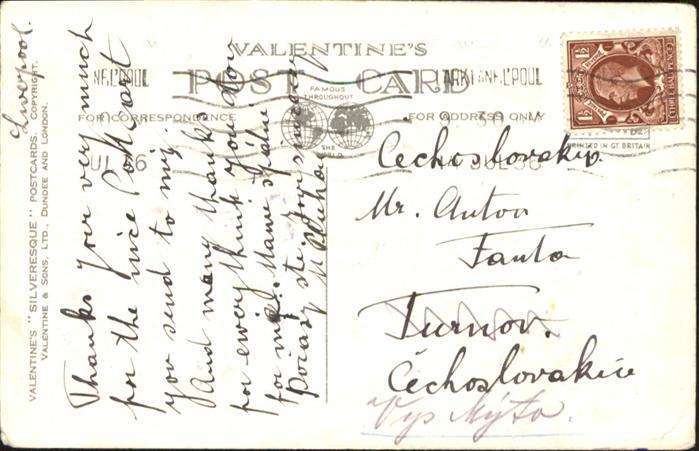 Liverpool.
VALENTINE'S "SILVERESQUE" POSTCARDS. COPYRIGHT.
VALENTINE & SONS, LTD., DUNDEE AND LONDON.
VALENTINE'S
POST CARD
FAMOUS
THROUGHOUT
THE
WORLD
FOR CORRESPONDENCE
FOR ADDRESS ONLY
PRINTED IN GT BRITAIN
Thanks your very much
for the nice Postcart
you send to my.
And many thank
for everything you don
for my. Mame
Čechoslovakie
Mr. Anton
Fanta
Turnov.
Čechoslovakie
Vys Mýto.
1½
1½